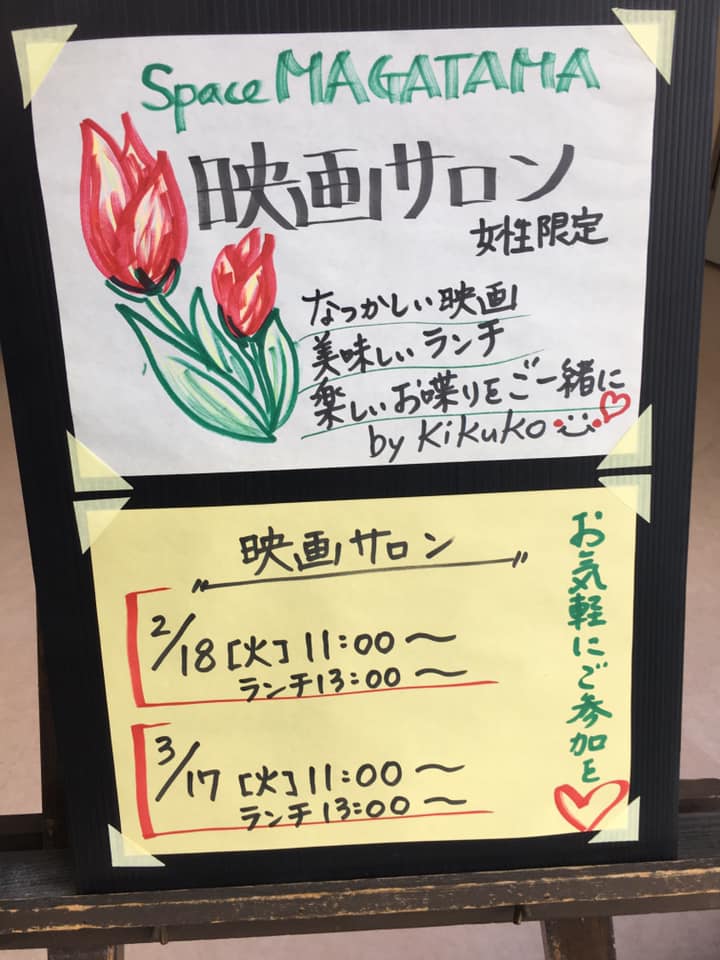 Space MAGATAMA
映画サロン
女性限定
なつかしい映画
美味しいランチ
楽しいお喋りをご一緒に
by Kikuko
映画サロン
2/18[火]11:00〜
ランチ13:00〜
3/17[火]11:00〜
ランチ13:00〜
お気軽にご参加を